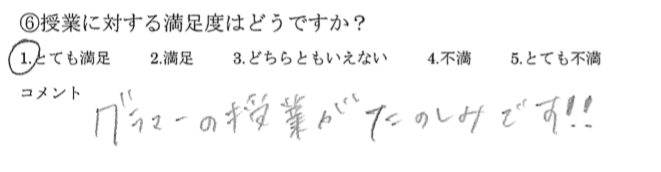 ⑥授業に対する満足度はどうですか？
1.とても満足 2.満足 3.どちらともいえない 4.不満 5.とても不満
コメント
グラマーの授業がたのしみです!!